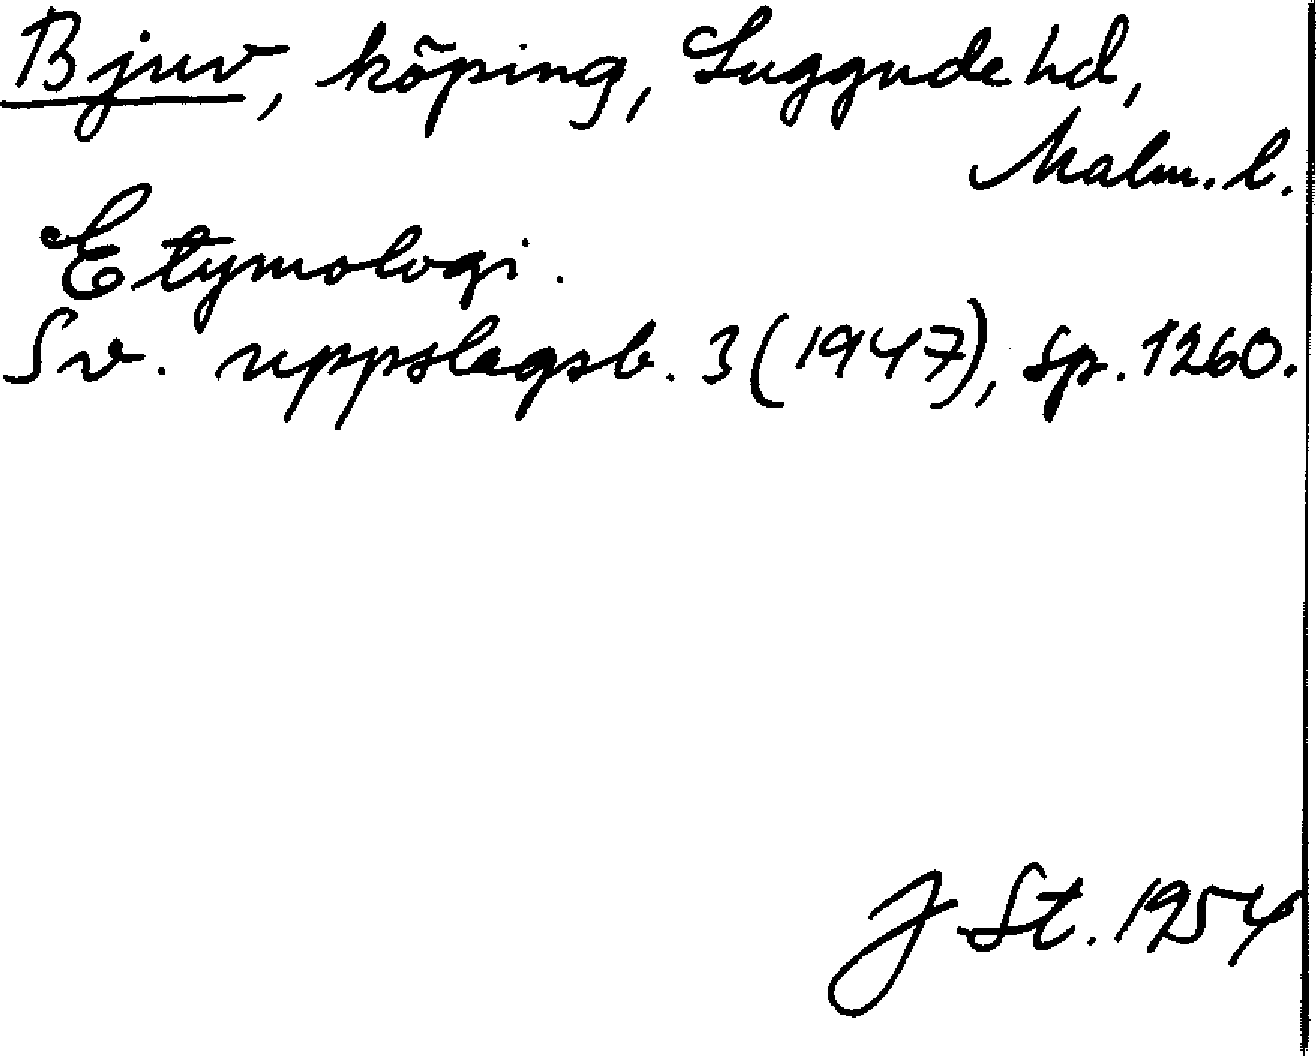 Bjuv, köping, Luggude hd,
Malm. l.
Etymologi.
Sv. uppslagsb. 3 (1947), sp. 1260.
J St. 1954